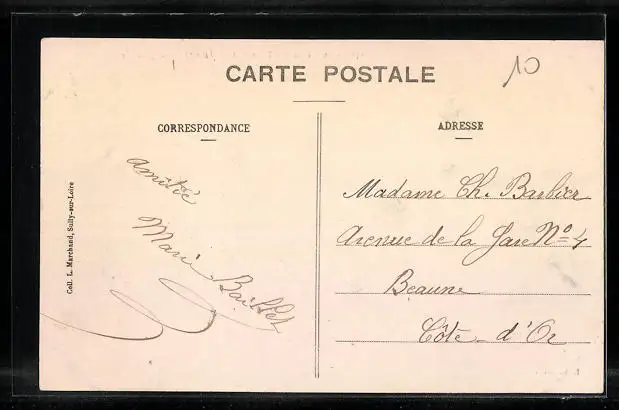 CARTE POSTALE
10
CORRESPONDANCE
ADRESSE
Amitié
Marie
Madame Ch. Barbier
Avenue de la Gare No 4
Beaune
Côte-d'Or
Coll. L. Marchand, Sully-sur-Loire